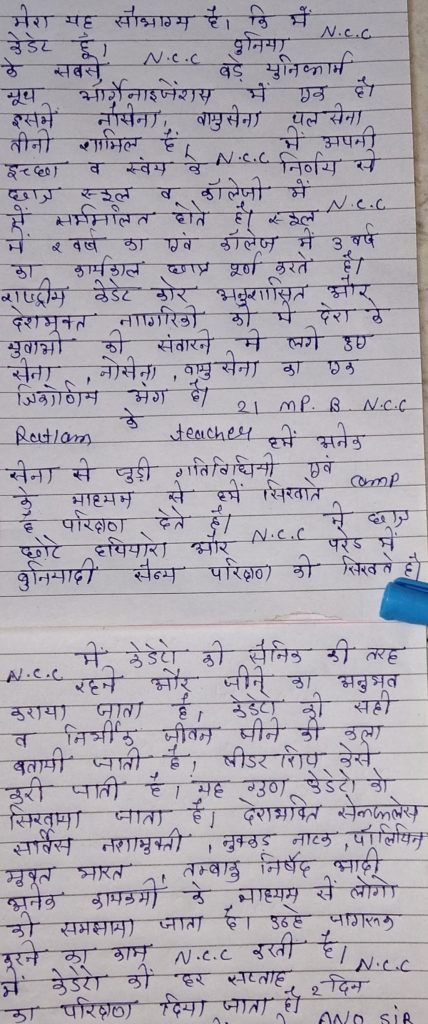 मेरा यह सौभाग्य है। कि में N.C.C
केडेट हूँ। दुनिया
के सबसे N.C.C बड़े युनिफार्म
यूथ ऑर्गेनाइजेशस में एक है।
इसमें नौसेना, वायुसेना थल सेना
तीनो शामिल हैं, में अपनी
इच्छा व स्वंय के N.C.C निर्णय से
छात्र स्कूल व कॉलेजो में
में सम्मिलित होते है। स्कूल N.C.C
में २ वर्ष का एवं कॉलेज में ३ वर्ष
का कार्यकाल छात्र पूर्ण करते है।
राष्ट्रीय केडेट कोर अनुशासित और
देशभक्त नागरिको को में देश के
युवाओ को संवारने में लगे हुए
सेना, नौसेना, वायु सेना का एक
त्रिकोणीय अंग है।
21 MP. B. N.C.C
Ratlam के teacher हमें अनेक
सेना से जुड़ी गतिविधियो एवं
के माध्यम से हमें सिखाते camp
है परिक्षण देते है।
छोटे हथियारो और N.C.C में छात्र
परेड में
बुनियादी सैन्य परिक्षण को सिखते है।
N.C.C में केडेटो को सैनिक की तरह
रहने और जीने का अनुभव
कराया जाता है, केडेटो को सही
व निर्भीक जीवन जीने की कला
बतायी जाती है, लीडर शिप केसे
करी जाती है, यह गुण केडेटो को
सिखाया जाता है। देशभक्ति सेल्फलेस
सर्विस नशामुक्ती, नुक्कड़ नाटक, पॉलिथिन
मुक्त भारत, तम्बाकु निषेद आदी
अनेक कार्यक्रमो के माध्यम से लोगो
को समझाया जाता है। उन्हे जागरूक
करने का काम N.C.C करती है।
में केडेटो को हर सप्ताह N.C.C
2 दिन
का परिक्षण दिया जाता है।
ANO SIR